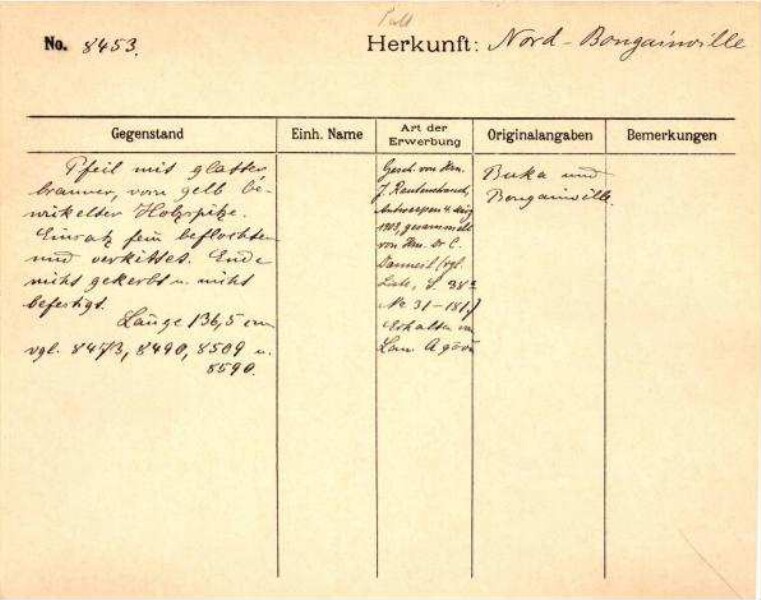 No. 8453.
Herkunft: Nord-Bougainville
Gegenstand
Einh. Name
Art der Erwerbung
Originalangaben
Bemerkungen
Pfeil mit glatter,
brauner, vorn gelb be-
wickelter Holzspitze.
Einsatz fein beflochten
und verkittet. Ende
nicht gekerbt u. nicht
befestigt.
Länge 136,5 cm
vgl. 8473, 8490, 8509 u.
8590.
Gesch. von Hrn.
J. Rautenstrauch,
Antwerpen 4. März
1903, gesammelt
von Hrn. Dr C.
Danneil (vgl.
Liste, S. 38
No 31-181
Erhalten von
Buka und
Bougainville.